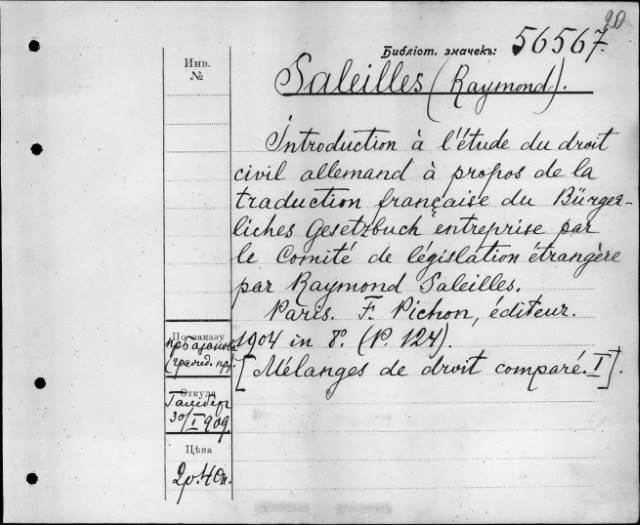 20
Библіот. значекъ: 56567.
Инв.
№
Saleilles (Raymond).
Introduction à l'étude du droit
civil allemand à propos de la
traduction française du Bürger-
liches Gesetzbuch entreprise par
le Comité de législation étrangère
par Raymond Saleilles.
Paris. F. Pichon, éditeur.
1904 in 8°. (P. 124).
[Mélanges de droit comparé. I].
По заказу
Откуда
30/I 909
Цѣна
2р. 40к.